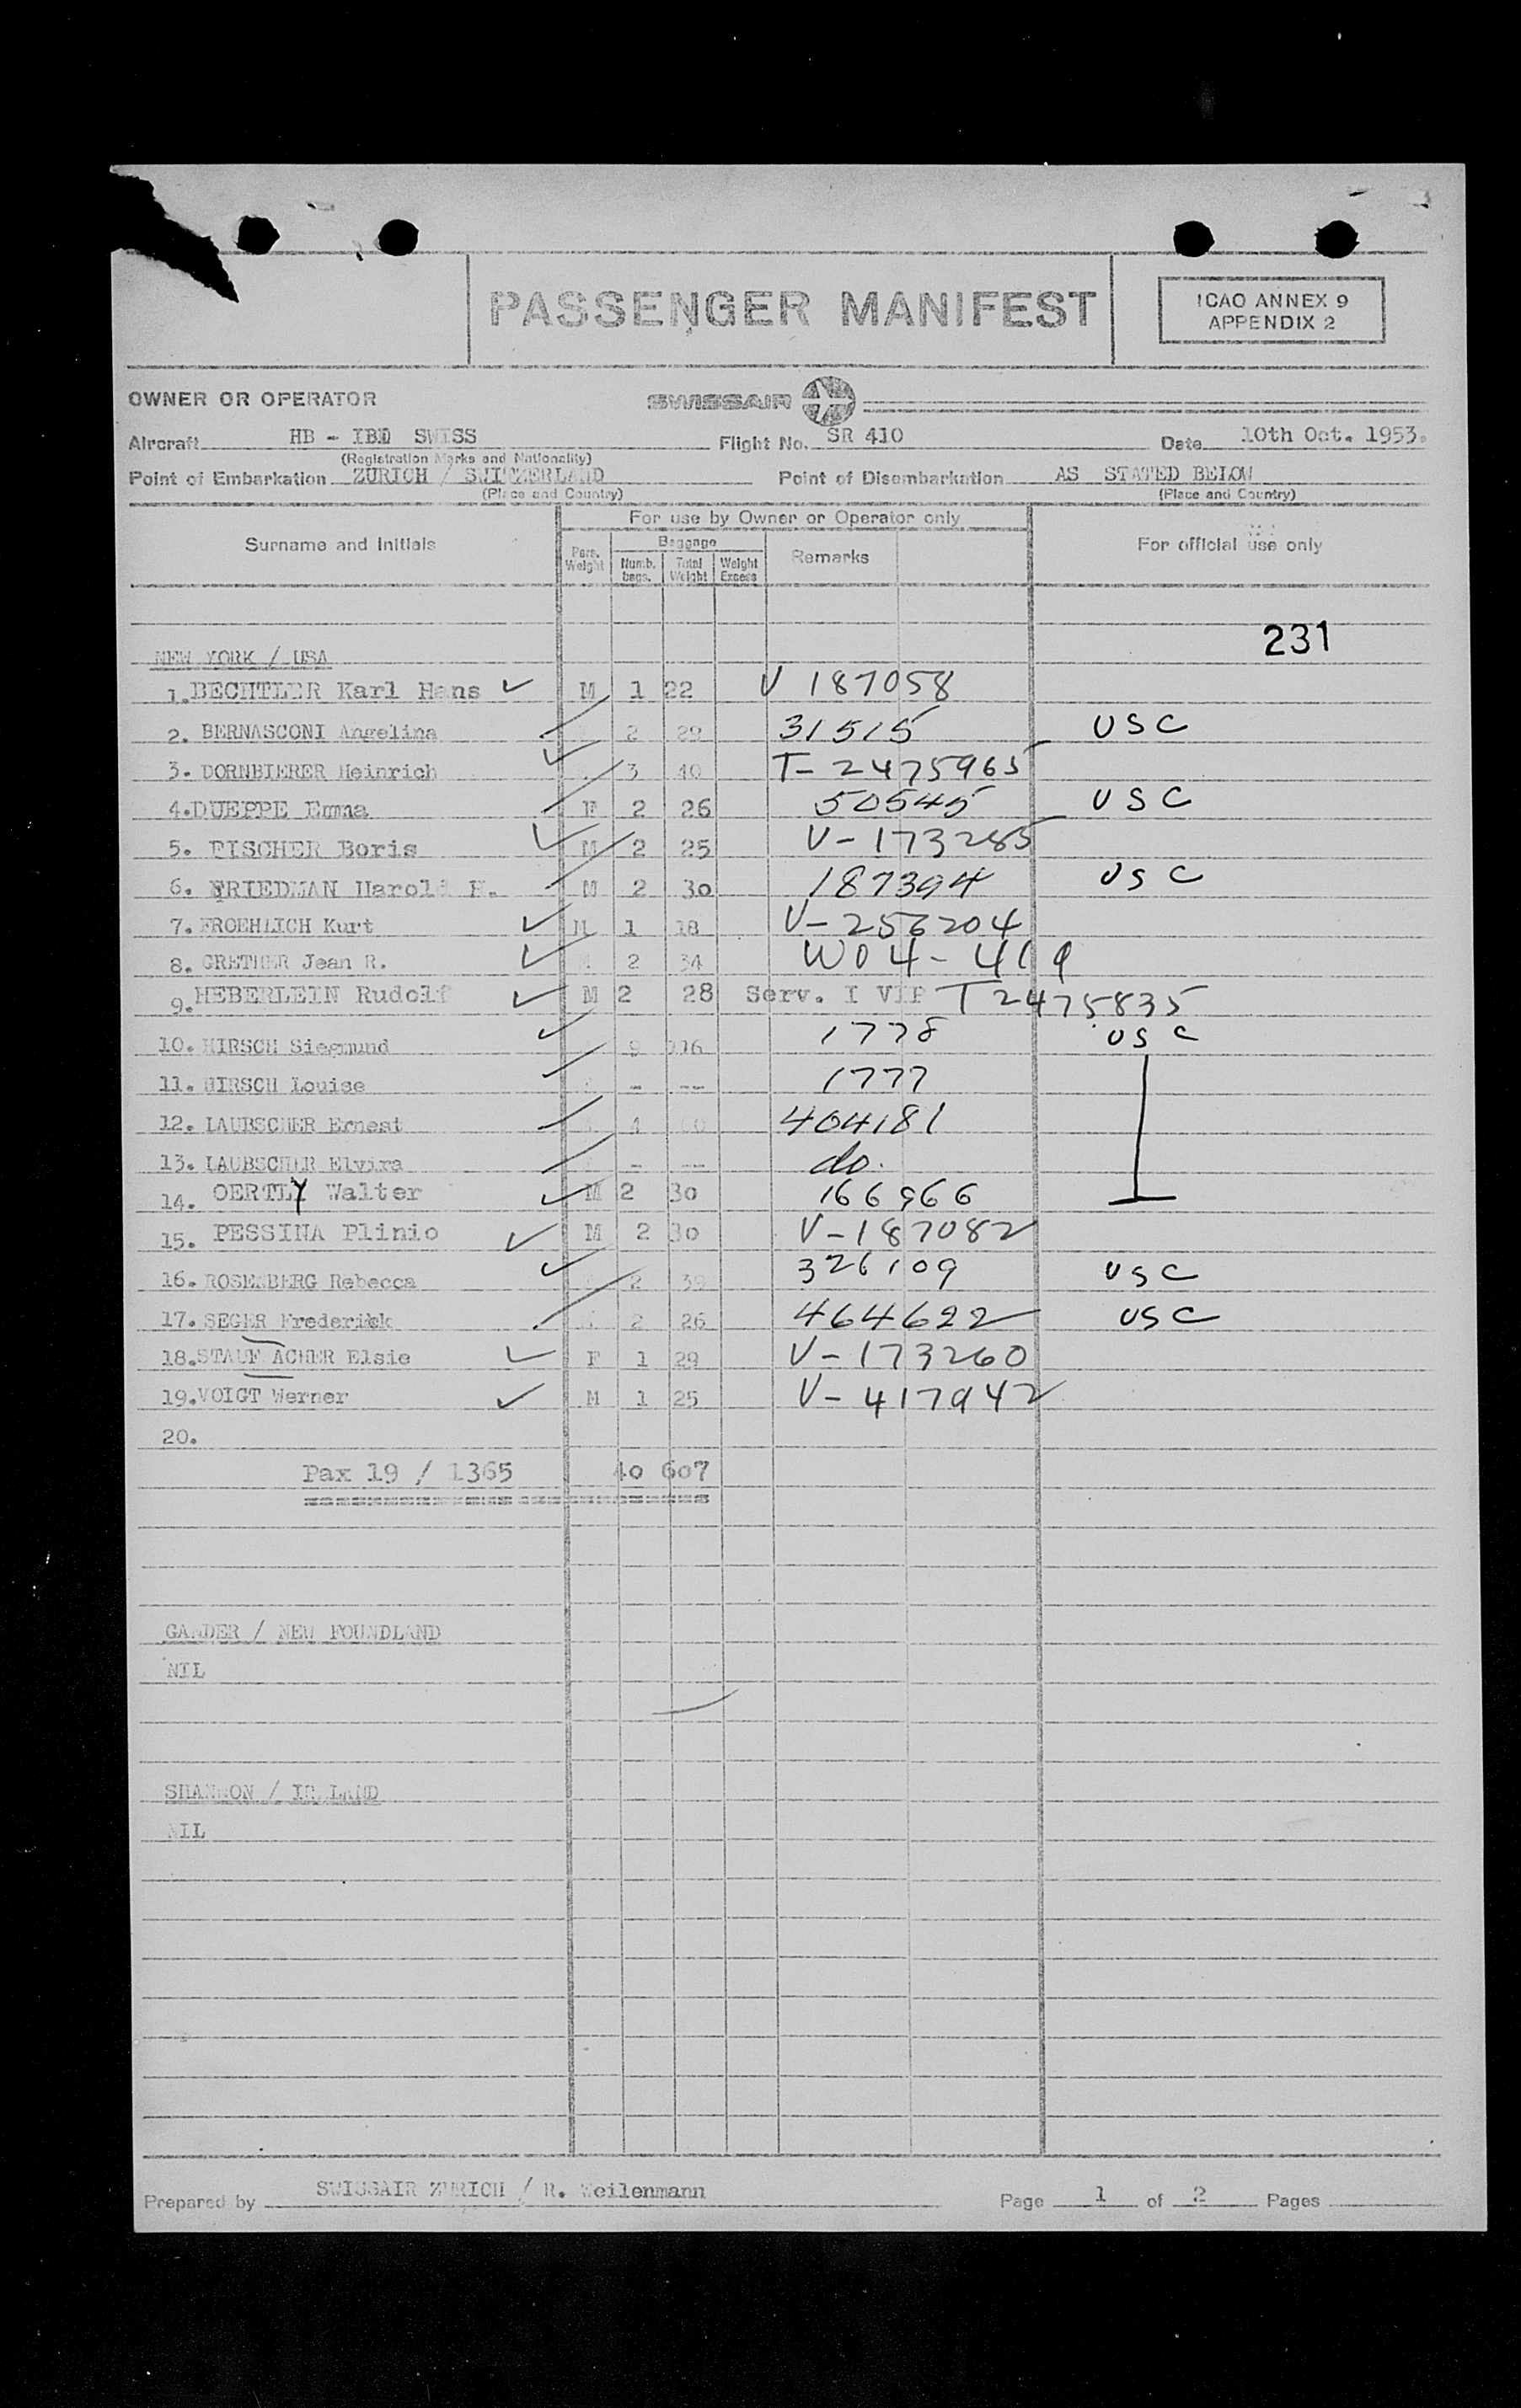 PASSENGER MANIFEST
ICAO ANNEX 9
APPENDIX 2
OWNER OR OPERATOR SWISSAIR
Aircraft HB - IBD SWISS Flight No. SR 410 Date 10th Oct. 1953.
(Registration Marks and Nationality)
Point of Embarkation ZURICH / SWITZERLAND Point of Disembarkation AS STATED BELOW
(Place and Country) (Place and Country)
For use by Owner or Operator only
Surname and Initials Pers. Weight Baggage Remarks For official use only
Numb. bags. Total Weight Weight Excess
231
NEW YORK / USA
1. BECHTLER Karl Hans M 1 22 V 187058
2. BERNASCONI Angelina 2 29 31515 USC
3. DORNBIERER Heinrich 3 40 T-2475965
4. DUEPPE Emma F 2 26 50545 USC
5. FISCHER Boris M 2 25 V-173285
6. FRIEDMAN Harold H. M 2 30 187394 USC
7. FROEHLICH Kurt M 1 18 V-256204
8. GRETHER Jean R. 2 34 W04-419
9. HEBERLEIN Rudolf M 2 28 Serv. I VIP T2475835
10. HIRSCH Siegmund 9 116 1778 USC
11. HIRSCH Louise - -- 1777
12. LAUBSCHER Ernest 4 60 404181
13. LAUBSCHER Elvira - -- do.
14. OERTLY Walter M 2 30 166966
15. PESSINA Plinio M 2 30 V-187082
16. ROSENBERG Rebecca 2 39 326109 USC
17. SEGER Frederick 2 26 464622 USC
18. STAUFFACHER Elsie F 1 29 V-173260
19. VOIGT Werner M 1 25 V-417942
20.
Pax 19 / 1365 40 607
GANDER / NEW FOUNDLAND
NIL
SHANNON / IRELAND
NIL
Prepared by SWISSAIR ZURICH / R. Weilenmann Page 1 of 2 Pages